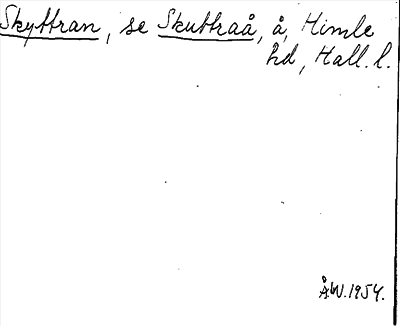 Skyttran, se Skuttraå, å, Himle
hd, Hall. l.
ÅW. 1954.